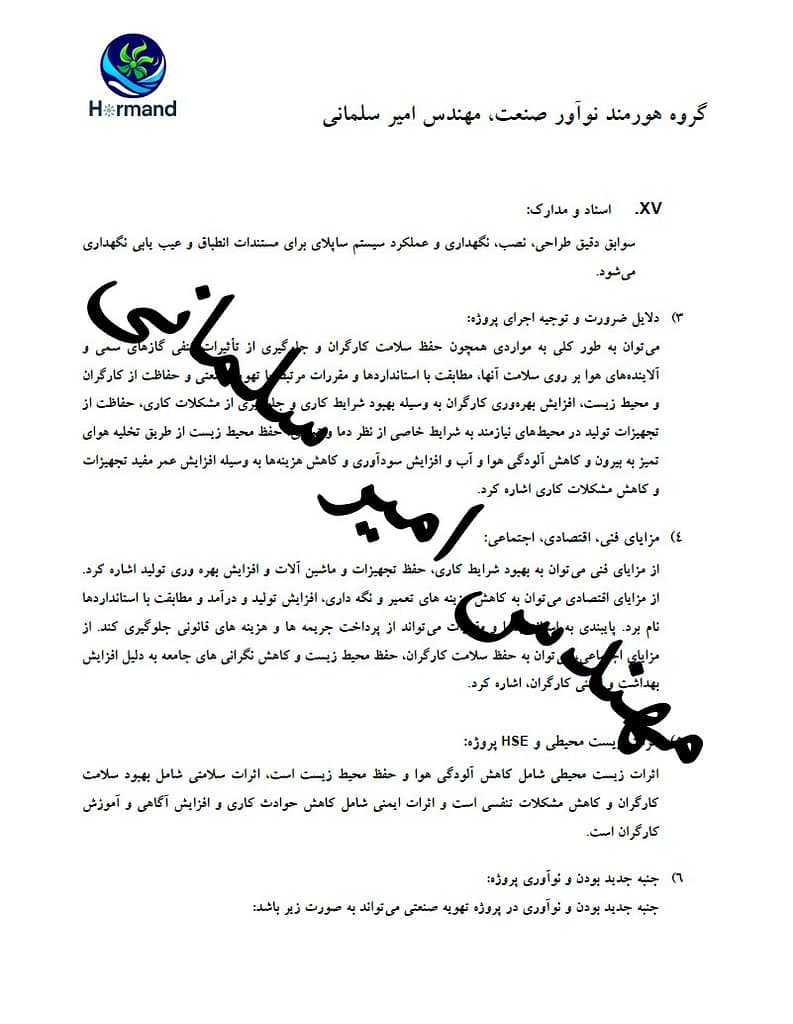 Hormand
گروه هورمند نوآور صنعت، مهندس امیر سلمانی
XV. اسناد و مدارک:
سوابق دقیق طراحی، نصب، نگهداری و عملکرد سیستم ساپلای برای مستندات انطباق و عیب یابی نگهداری
می‌شود.
۳) دلایل ضرورت و توجیه اجرای پروژه:
می‌توان به طور کلی به مواردی همچون حفظ سلامت کارگران و جلوگیری از تأثیرات منفی گازهای سمی و
آلاینده‌های هوا بر روی سلامت آنها، مطابقت با استانداردها و مقررات مرتبط با تهویه صنعتی و حفاظت از کارگران
و محیط زیست، افزایش بهره‌وری کارگران به وسیله بهبود شرایط کاری و جلوگیری از مشکلات کاری، حفاظت از
تجهیزات تولید در محیط‌های نیازمند به شرایط خاصی از نظر دما و حفظ محیط زیست از طریق تخلیه هوای
تمیز به بیرون و کاهش آلودگی هوا و آب و افزایش سودآوری و کاهش هزینه‌ها به وسیله افزایش عمر مفید تجهیزات
و کاهش مشکلات کاری اشاره کرد.
۴) مزایای فنی، اقتصادی، اجتماعی:
از مزایای فنی می‌توان به بهبود شرایط کاری، حفظ تجهیزات و ماشین آلات و افزایش بهره وری تولید اشاره کرد.
از مزایای اقتصادی می‌توان به کاهش هزینه های تعمیر و نگه داری، افزایش تولید و درآمد و مطابقت با استانداردها
نام برد. پایبندی به استانداردها و مقررات می‌تواند از پرداخت جریمه ها و هزینه های قانونی جلوگیری کند. از
مزایای اجتماعی، می‌توان به حفظ سلامت کارگران، حفظ محیط زیست و کاهش نگرانی های جامعه به دلیل افزایش
بهداشت و ایمنی کارگران، اشاره کرد.
زیست محیطی و HSE پروژه:
اثرات زیست محیطی شامل کاهش آلودگی هوا و حفظ محیط زیست است، اثرات سلامتی شامل بهبود سلامت
کارگران و کاهش مشکلات تنفسی است و اثرات ایمنی شامل کاهش حوادث کاری و افزایش آگاهی و آموزش
کارگران است.
۶) جنبه جدید بودن و نوآوری پروژه:
جنبه جدید بودن و نوآوری در پروژه تهویه صنعتی می‌تواند به صورت زیر باشد:
مهندس امیر سلمانی